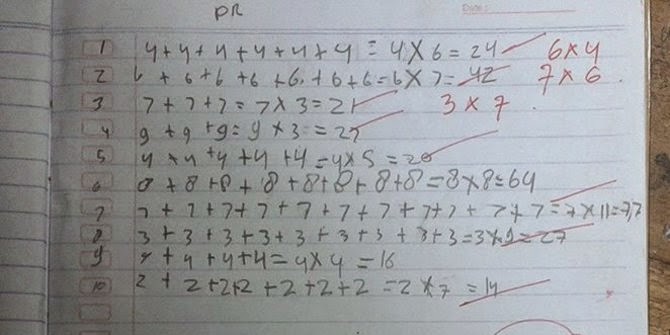 PR
Date:
1 4+4+4+4+4+4 = 4 x 6 = 24 6 x 4
2 6 + 6+6+6+6+6+6=6 x 7=42 7 x 6
3 7+7+7=7x3=21 3 x 7
4 9+9+9=9x3=27
5 4x4+4+4+4=4x5=20
6 8+8+8+8+8+8+8+8=8x8=64
7 7+7+7+7+7+7+7+7+7+7+7=7x11=77
8 3+3+3+3+3+3+3+3+3=3x9=27
9 4+4+4+4=4x4=16
10 2+2+2+2+2+2+2=2x7=14